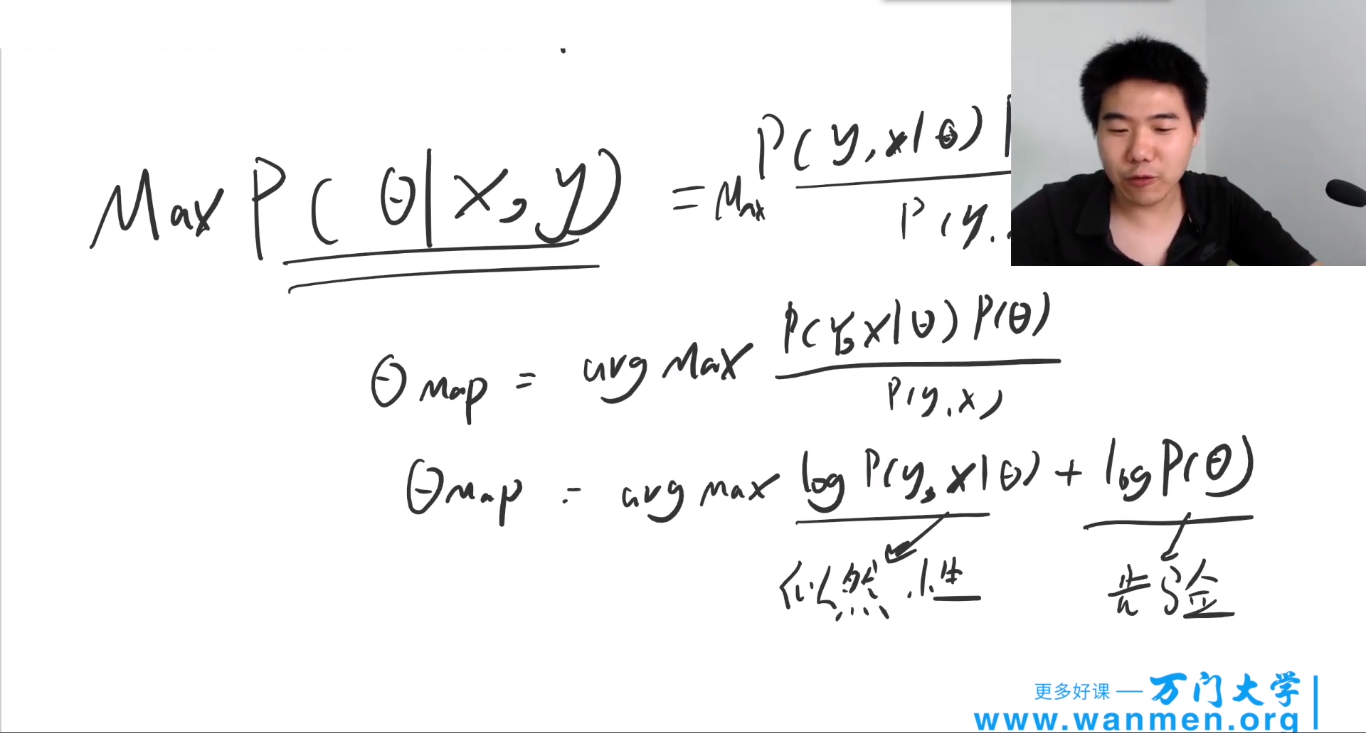 Max P(θ|x,y) = Max P(y,x|θ) / P(y,
θ Map = arg Max P(y,x|θ) P(θ) / P(y,x)
θ Map = arg max log P(y,x|θ) + log P(θ)
似然性 先验
更多好课 — 万门大学
www.wanmen.org